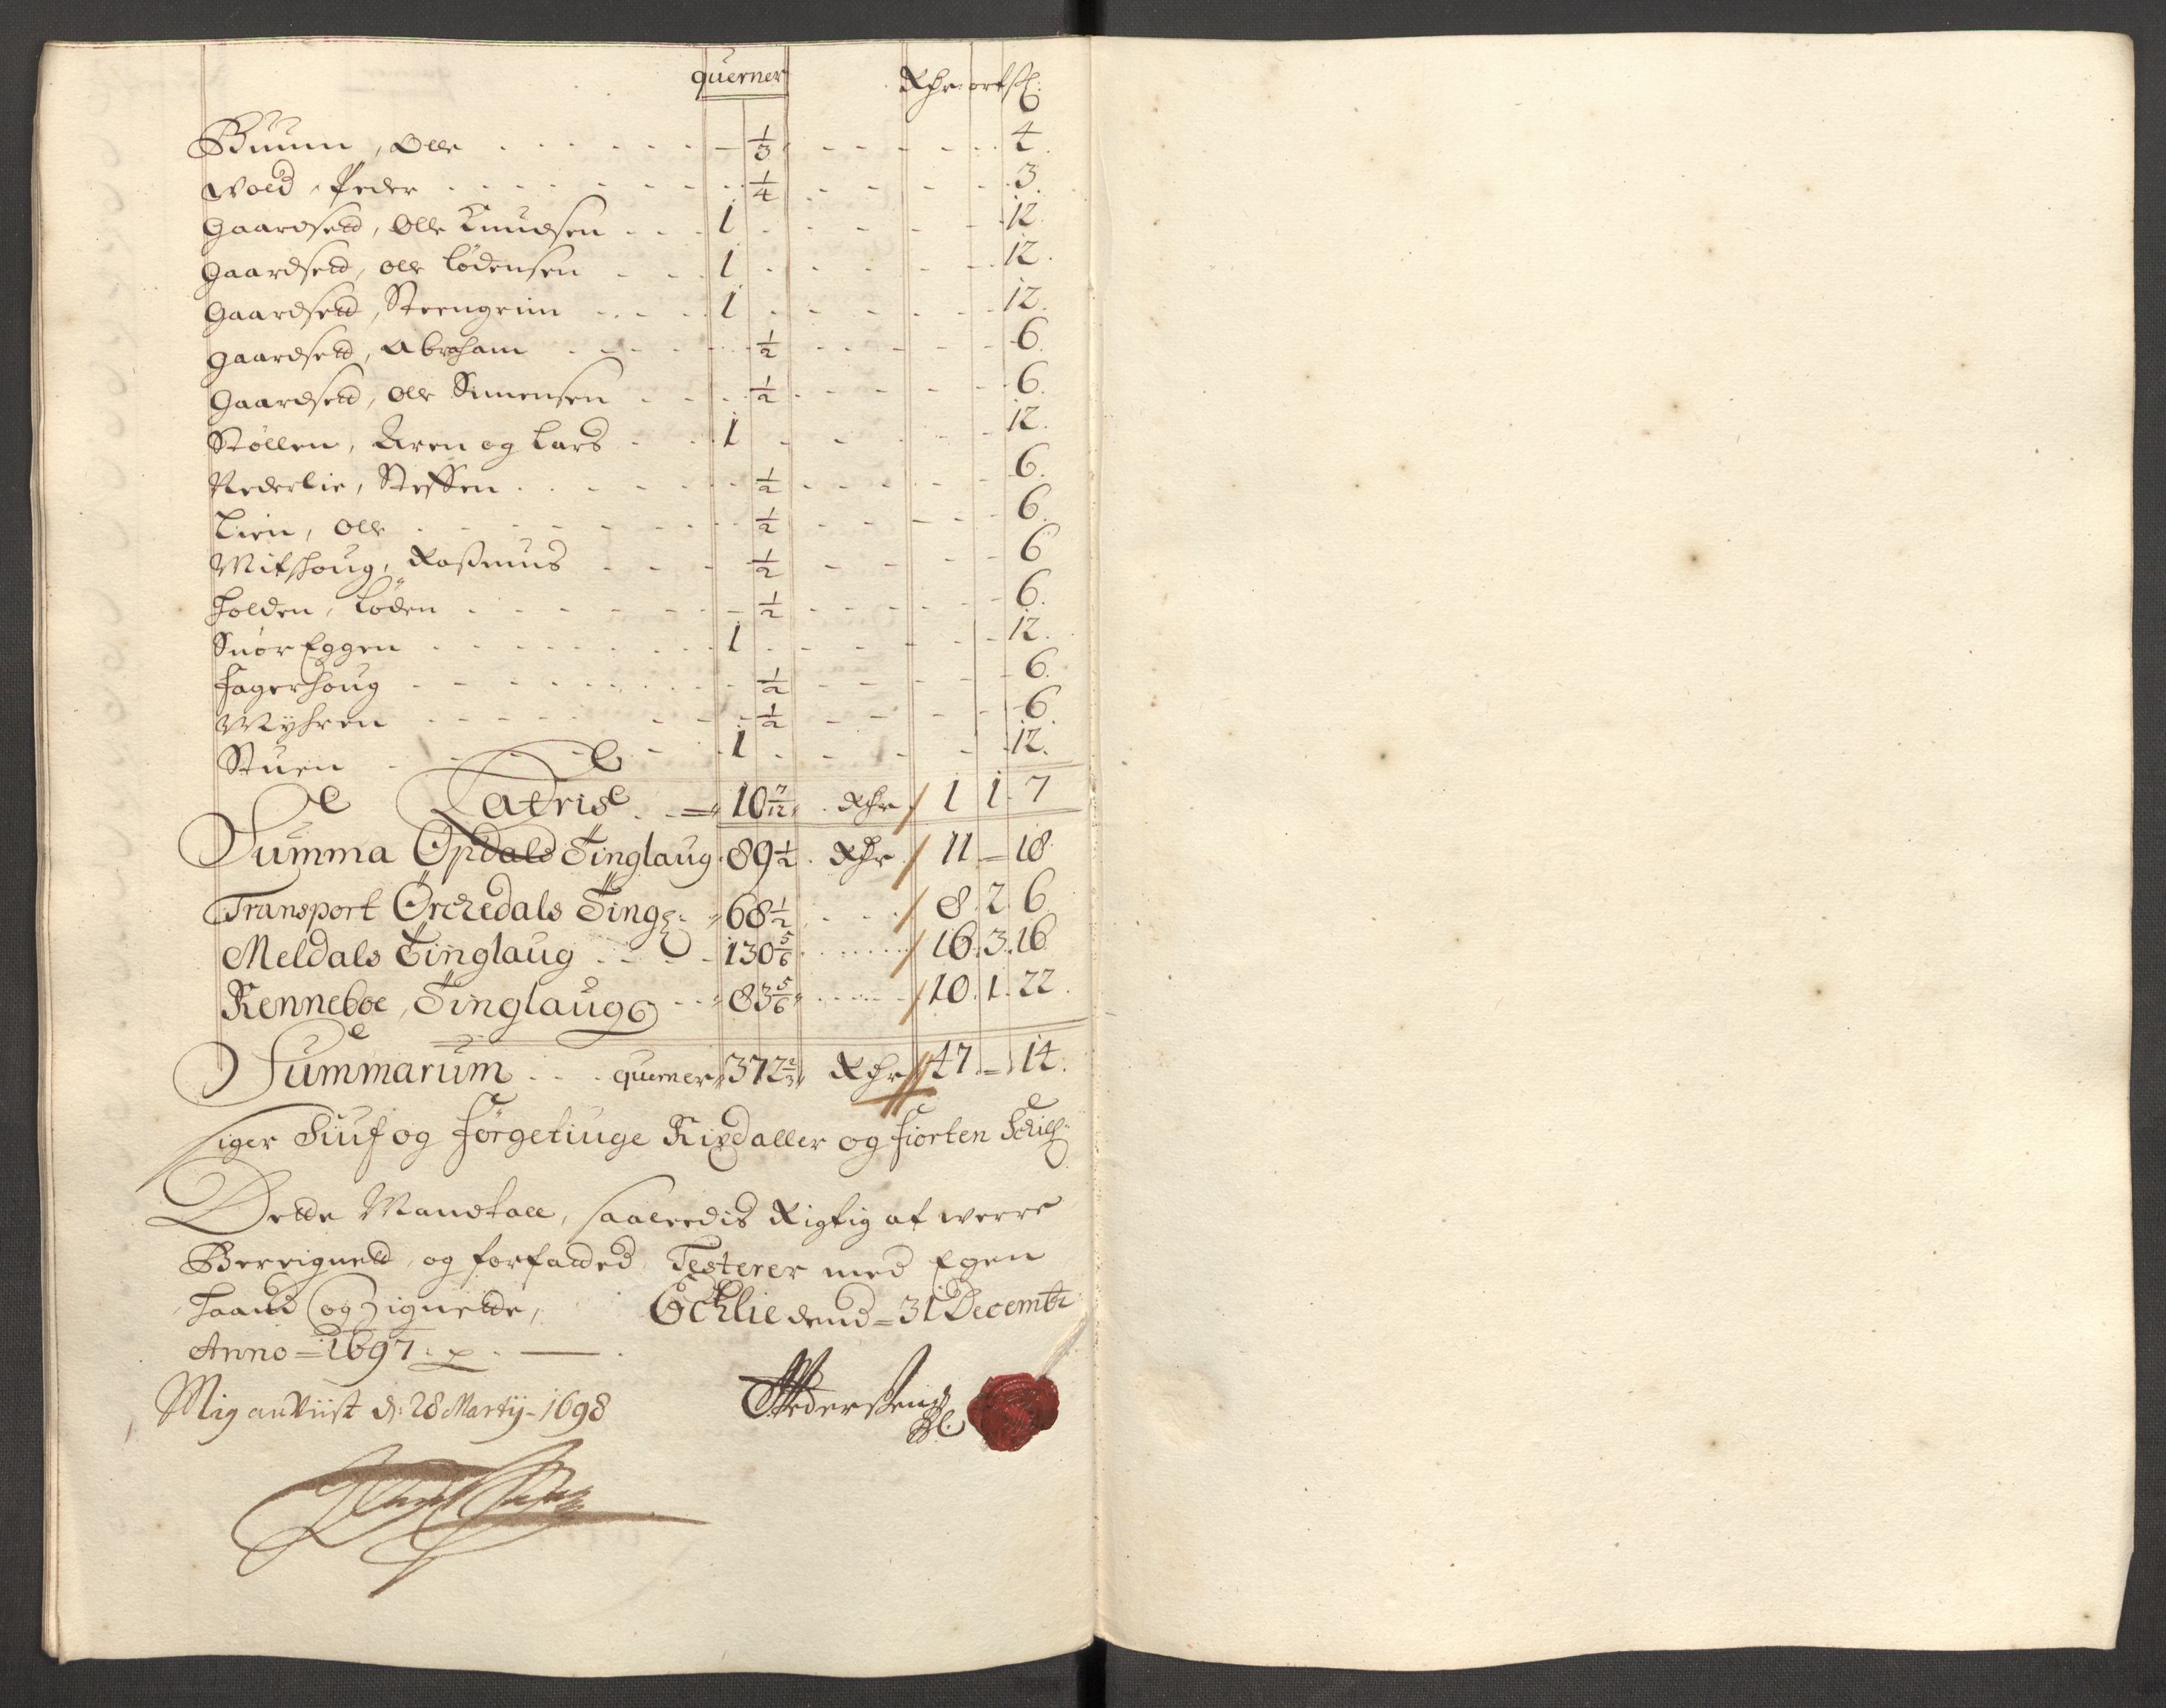 querner Rdr ort ſſ:
Buum, Olle - 1/3 - 4.
Wold, Peder - 1/4 - 3.
Gaardsetd, Olle Knudsen - 1 - 12.
Gaardsetd, Olle Lodensen - 1 - 12.
Gaardsetd, Steengrim - 1 - 12.
Gaardsetd, Abraham - 1/2 - 6.
Gaardsetd, Olle Simensen - 1/2 - 6.
Stöllen, Aren og Lars - 1 - 12.
Nederlie, Steffen - 1/2 - 6.
Lien, Olle - 1/2 - 6.
Mitshoug, Rasmus - 1/2 - 6
Holden, Loden - 1/2 - 6.
Snör Eggen - 1 - 12.
Fagerhoug - 1/2 - 6.
Myhren - 1/2 - 6.
Stuen - 1 - 12.
Latris - 10 7/12 Rdr 1 1 7
Summa Opdals Tinglaug 89 1/2 Rdr 11 - 18
Transport Örckedals Tingl: 68 1/2 8. 2. 6
Meldals Tinglaug 130 5/6 16. 3. 16
Renneboe, Tinglaug 83 5/6 10. 1. 22.
Summarum querner 372 2/3 Rdr 47 - 14.
siger Siuf og förgetiuge Rixdaller og fiorten Schill:
Dette Mandtall, saaleedis Rigtig at werre
Berrignett, og forfatted Testerer med Egen
Haand og Zignette, Echlie dend = 31 Decembr
Anno = 1697.
Mig anviist d: 28 Martij - 1698
Pedersen